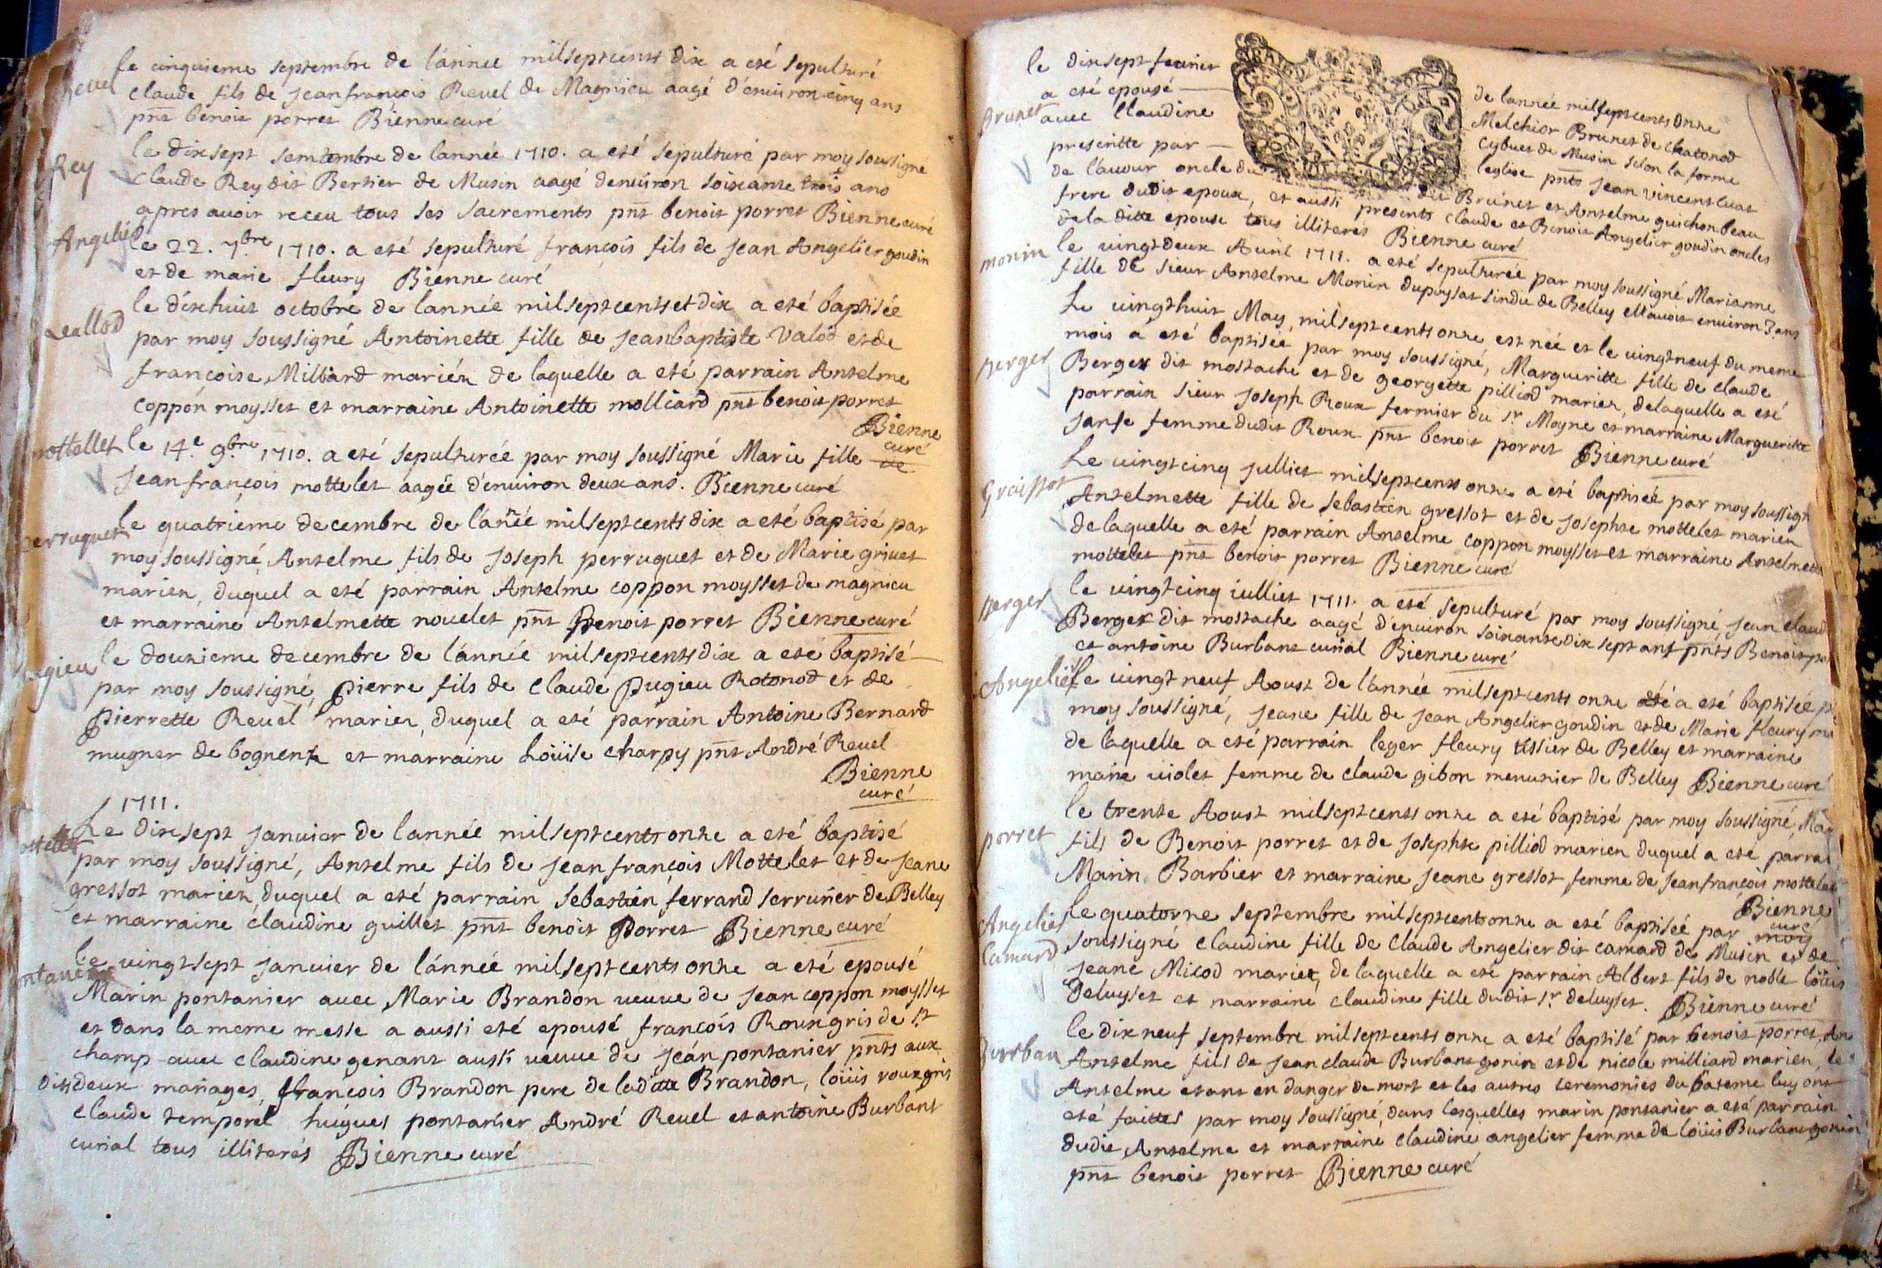 Revel
le cinquieme septembre de l'année mil sept cents dix a eté sepulturé
claude fils de jean françois Revel de Magnieu aagé d'environ cinq ans
pnt benoit porret Bienne curé
Rey
le dix sept semtembre de lannée 1710. a eté sepulturé par moy soussigné
claude Rey dit Bertier de Musin aagé denviron soixante trois ans
apres avoir receu tous ses sacrements pnt benoit porret Bienne curé
Angelier
le 22. 7bre 1710. a eté sepulturé francois fils de jean Angelier goudin
et de marie fleury Bienne curé
Vallod
le dixhuit octobre de lannée mil sept cents et dix a eté baptisée
par moy soussigné Antoinette fille de jean baptiste Valod et de
francoise Milliard mariéz de laquelle a eté parrain Antelme
coppon moysset et marraine Antoinette molliard pnt benoit porret
Bienne
curé
mottellet
le 14e 9bre 1710. a eté sepulturée par moy soussigné Marie fille de
jean françois mottelet aagée d'environ deux ans. Bienne curé
perruquet
le quatrieme decembre de l'année mil sept cents dix a eté baptisé par
moy soussigné, Antelme fils de joseph perruquet et de Marie grivet
mariez, duquel a eté parrain Antelme coppon moysset de magnieu
et marraine Antelmette novelet pnt Benoit porret Bienne curé
pugieu
le douzieme decembre de l'année mil sept cents dix a eté baptisé
par moy soussigné, pierre fils de claude pugieu Rotonod et de
pierrette Revel mariez, duquel a eté parrain Antoine Bernard
mugner de bognens et marraine Loüise charpy pnt André Revel
Bienne
curé
1711.
mottellet
Le dix sept janvier de lannée mil sept cents onze a eté baptisé
par moy soussigné, Antelme fils de jean françois Mottelet et de jeane
gressot mariez, duquel a eté parrain sebastien ferrand serrurier de Belley
et marraine claudine guillet pnt benoit porret Bienne curé
pontanier
le vingt sept janvier de lánnée mil sept cents onze a eté epousé
Marin pontanier avec Marie Brandon veuve de jean coppon moysset
et dans la meme messe a aussi eté epousé françois Rouxgris de st
champ avec claudine genant aussi veuve de jean pontanier pnts aux
dits deux mariages, françois Brandon pere de laditte Brandon, loüis rouxgris
claude temporel hugues pontanier André Revel et antoine Burbant
curial tous illiterés Bienne curé
Brunet
le dix sept fevrier
a eté epousé
avec Claudine
presentte par
de lavour oncle du
de lannée mil sept cents onze
Melchior Brunet de chatonod
Cybuet de Musin selon la forme
leglise pnts jean vincent Cuat
dit Brunet et Antelme guichon beau
frere dudit epoux, et aussi presents claude et Benoit Angelier goudin oncles
de la ditte epouse tous illiterés Bienne curé
monin
le vingt deux Avril 1711. a eté sepulturée par moy soussigné Marianne
fille de sieur Antelme Monin dupuysat sindic de Belley ell avoit environ 3 ans
Berger
Le vingt huit May, mil sept cents onze est née et le vingt neuf du meme
mois a eté baptisée par moy soussigné, Margueritte fille de claude
Berger dit mostache et de georgette pilliod mariez, de laquelle a eté
parrain sieur joseph Roux fermier du sr Moyne et marraine Margueritte
femme dudit Roux pnt benoit porret Bienne curé
Graissot
Le vingt cinq julliet mil sept cents onze a eté baptisée par moy soussigné
Antelmette fille de sebastien gressot et de josephte mottelet mariez
de laquelle a eté parrain Antelme coppon moysset et marraine Antelmette
mottelet pnt benoit porret Bienne curé
Berger
le vingt cinq julliet 1711. a eté sepulturé par moy soussigné, jean claude
Berger dit mostache aagé d'environ soixante dix sept ans pnts Benoit po
et antoine Burbant curial Bienne curé
Angelier
le vingt neuf Aoust de l'année mil sept cents onze a eté baptisée p
moy soussigné, jeane fille de jean Angelier goudin et de Marie fleury ma
de laquelle a eté parrain leger fleury tissier de Belley et marraine
marie violet femme de claude gibon menusier de Belley Bienne curé
porret
le trente Aoust mil sept cents onze a eté baptisé par moy soussigné Ma
fils de Benoit porret et de josephte pilliod mariez duquel a eté parrai
Marin Barbier et marraine jeane gressot femme de jean françois mottelet
Bienne
curé
Angelier
Camard
le quatorze septembre mil sept cents onze a eté baptisée par moy
soussigné claudine fille de claude Angelier dit camard de Musin et de
jeane Micod mariez, de laquelle a eté parrain Albert fils de noble loüis
deluyset et marraine claudine fille dudit sr deluyset. Bienne curé
Burban
le dix neuf septembre mil sept cents onze a eté baptisé par benoit porret, An
Antelme fils de jean claude Burbant gonin et de nicole milliard mariez, le
Antelme etant en danger de mort et les autres ceremonies du bateme luy ont
eté faittes par moy soussigné, dans lesquelles marin pontanier a eté parrain
dudit Antelme et marraine claudine angelier femme de loüis Burbant gonin
pnt benoit porret Bienne curé